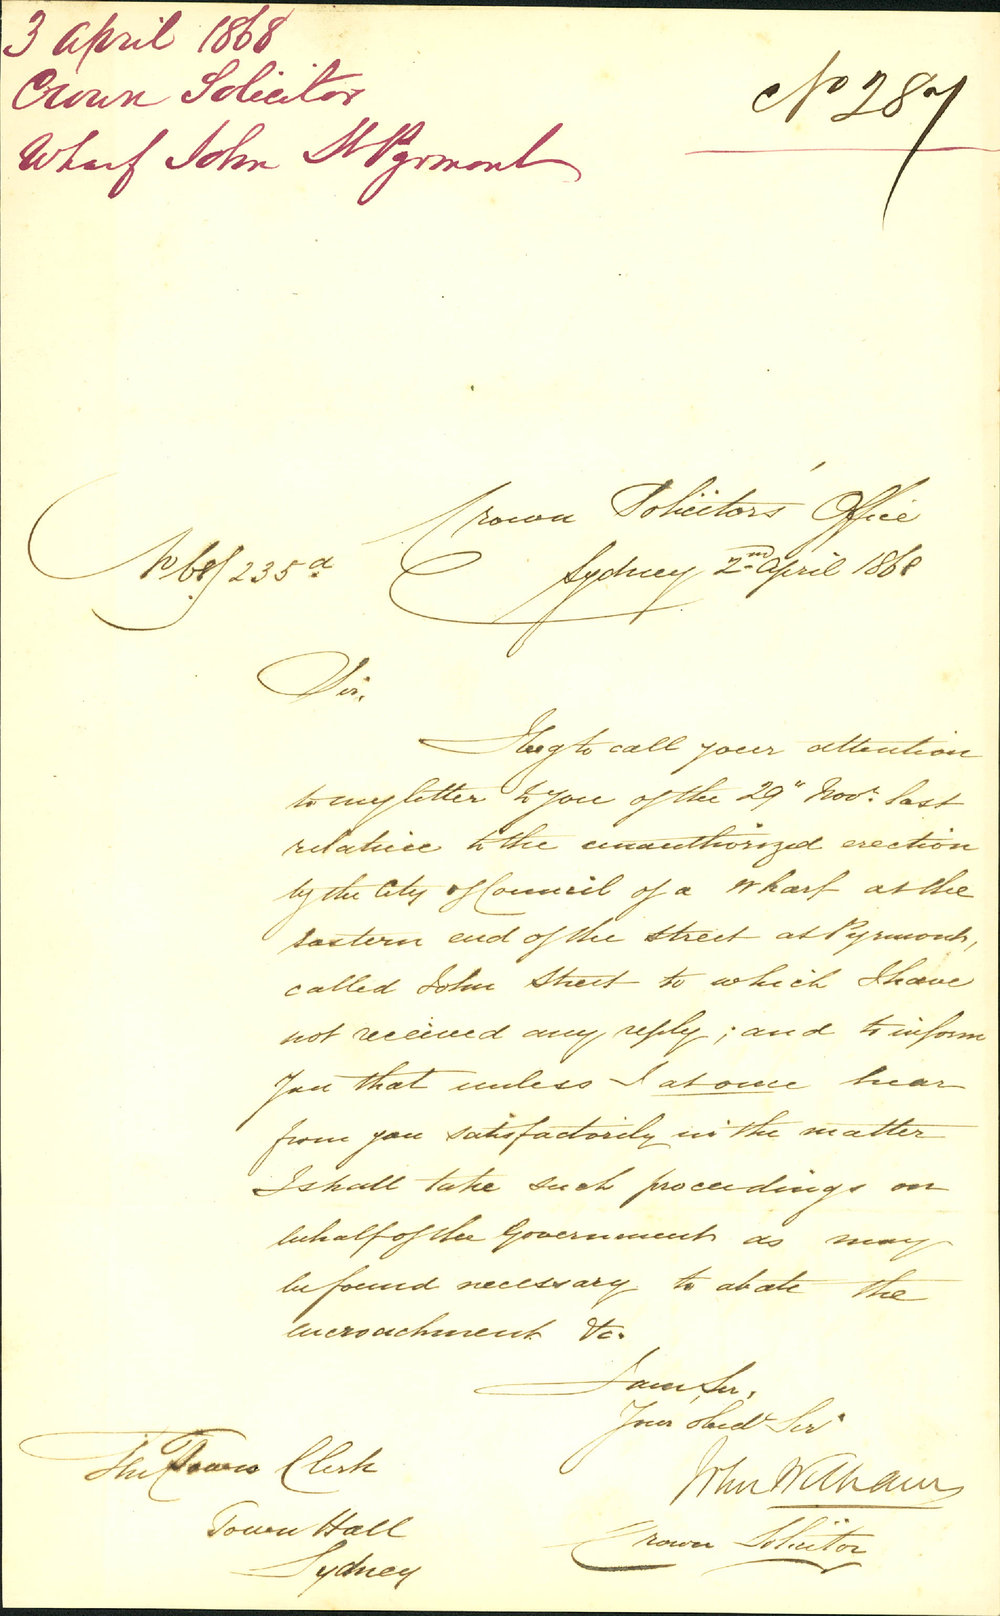 3 April 1868
Crown Solicitor
Wharf John St Pyrmont
No 287
Crown Solicitors' Office
No 68/235a
Sydney 2nd April 1868
Sir,
I beg to call your attention
to my letter to you of the 29" Novr. last
relative to the unauthorized erection
by the City of Council of a Wharf at the
Eastern end of the Street at Pyrmont,
called John Street to which I have
not received any reply; and to inform
you that unless I at once hear
from you satisfactorily in the matter
I shall take such proceedings on
behalf of the Government as may
be found necessary to abate the
encroachment &c.
I am, Sir,
Your obedt Servt
John Williams
Crown Solicitor
The Town Clerk
Town Hall
Sydney